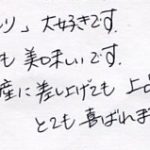 ソ」大好きです.
も美味しいです.
産に差し上げても上
とても喜ばれま